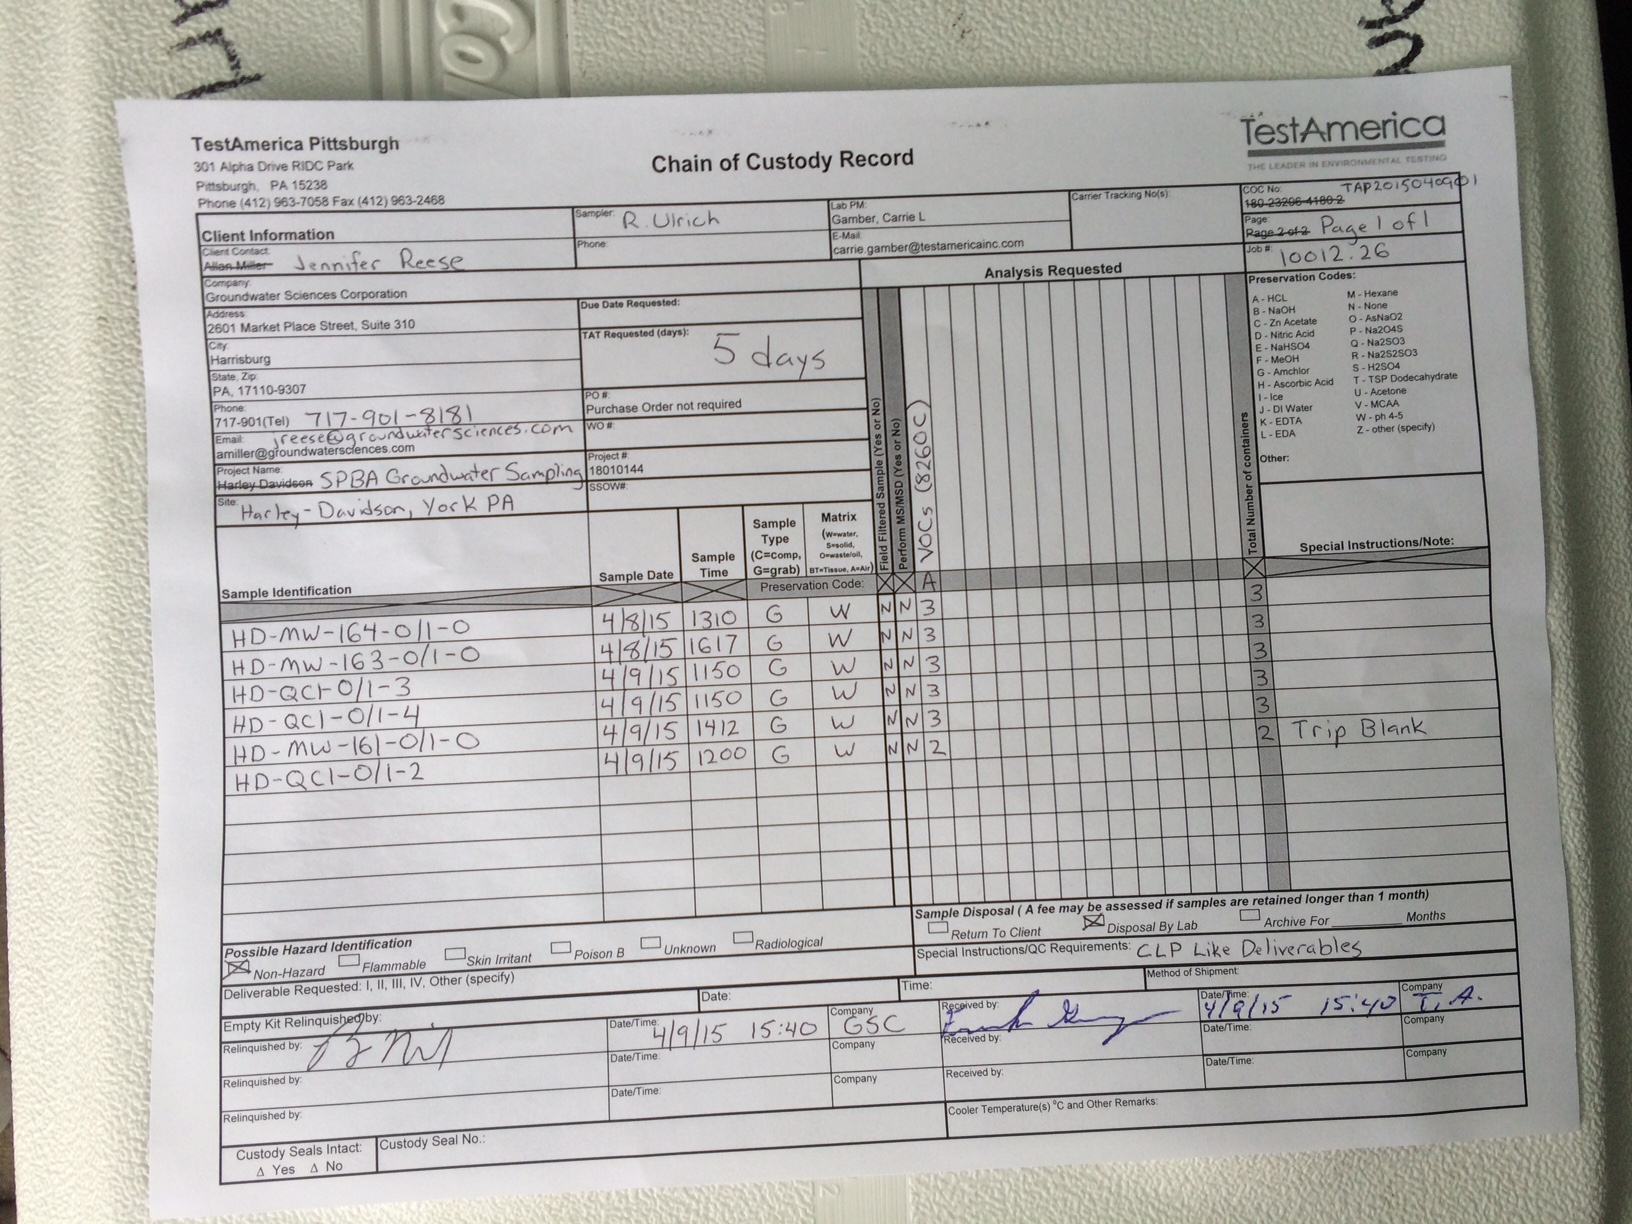 TestAmerica Pittsburgh
301 Alpha Drive RIDC Park
Pittsburgh, PA 15238
Phone (412) 963-7058 Fax (412) 963-2468
Chain of Custody Record
TestAmerica
THE LEADER IN ENVIRONMENTAL TESTING
Client Information
Sampler: R. Ulrich
Lab PM:
Gamber, Carrie L
Carrier Tracking No(s):
COC No: TAP2015040901
180-23206-4180-2
Client Contact:
Allan Miller Jennifer Reese
Phone:
E-Mail:
carrie.gamber@testamericainc.com
Page:
Page 2 of 2 Page 1 of 1
Company:
Groundwater Sciences Corporation
Analysis Requested
Job #: 10012.26
Address:
2601 Market Place Street, Suite 310
Due Date Requested:
City:
Harrisburg
TAT Requested (days): 5 days
State, Zip:
PA, 17110-9307
Phone:
717-901(Tel) 717-901-8181
PO #:
Purchase Order not required
Email: jreese@groundwatersciences.com
amiller@groundwatersciences.com
WO #:
Project Name:
Harley Davidson SPBA Groundwater Sampling
Project #:
18010144
Site: Harley-Davidson, York PA
SSOW#:
Field Filtered Sample (Yes or No)
Perform MS/MSD (Yes or No)
VOCs (8260C)
Total Number of containers
Preservation Codes:
A - HCL
B - NaOH
C - Zn Acetate
D - Nitric Acid
E - NaHSO4
F - MeOH
G - Amchlor
H - Ascorbic Acid
I - Ice
J - DI Water
K - EDTA
L - EDA
M - Hexane
N - None
O - AsNaO2
P - Na2O4S
Q - Na2SO3
R - Na2S2SO3
S - H2SO4
T - TSP Dodecahydrate
U - Acetone
V - MCAA
W - ph 4-5
Z - other (specify)
Other:
Sample Identification
Sample Date
Sample Time
Sample Type (C=comp, G=grab)
Matrix (W=water, S=solid, O=waste/oil, BT=Tissue, A=Air)
Special Instructions/Note:
Preservation Code: A
HD-MW-164-0/1-0 4/8/15 1310 G W N N 3 3
HD-MW-163-0/1-0 4/8/15 1617 G W N N 3 3
HD-QC1-0/1-3 4/9/15 1150 G W N N 3 3
HD-QC1-0/1-4 4/9/15 1150 G W N N 3 3
HD-MW-161-0/1-0 4/9/15 1412 G W N N 3 3
HD-QC1-0/1-2 4/9/15 1200 G W N N 2 2 Trip Blank
Possible Hazard Identification
Non-Hazard Flammable Skin Irritant Poison B Unknown Radiological
Sample Disposal ( A fee may be assessed if samples are retained longer than 1 month)
Return To Client Disposal By Lab Archive For Months
Deliverable Requested: I, II, III, IV, Other (specify)
Special Instructions/QC Requirements: CLP Like Deliverables
Empty Kit Relinquished by: Date: Time: Method of Shipment:
Relinquished by: Date/Time: 4/9/15 15:40 Company GSC Received by: Date/Time: 4/9/15 15:40 Company T.A.
Relinquished by: Date/Time: Company Received by: Date/Time: Company
Relinquished by: Date/Time: Company Received by: Date/Time: Company
Custody Seals Intact: Custody Seal No.: Cooler Temperature(s) °C and Other Remarks:
Δ Yes Δ No